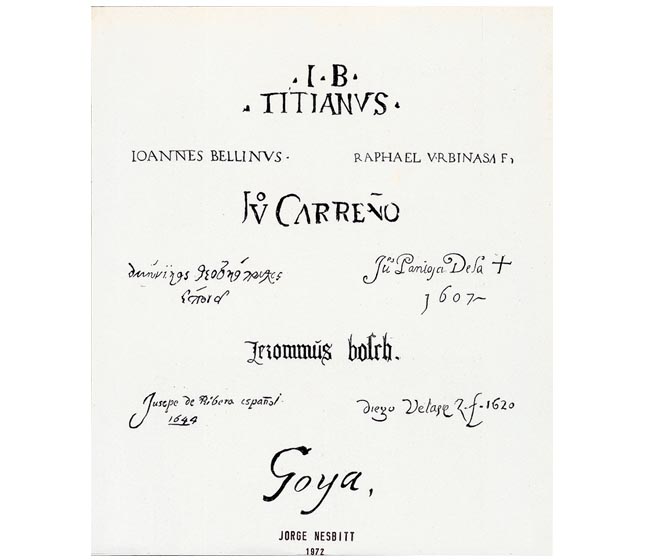 .I.B.
.TITIANVS.
IOANNES BELLINVS.
RAPHAEL VRBINAS F,
Jº V CARREÑO
δομήνικος θεοτοκόπουλος
ἐποίει
Juᵉˢ Pantoja Dela +
1607
Jeronimus bosch.
Jusepe de Ribera español.
1644
diego Velasqz. f. 1620
Goya,
JORGE NESBITT
1972